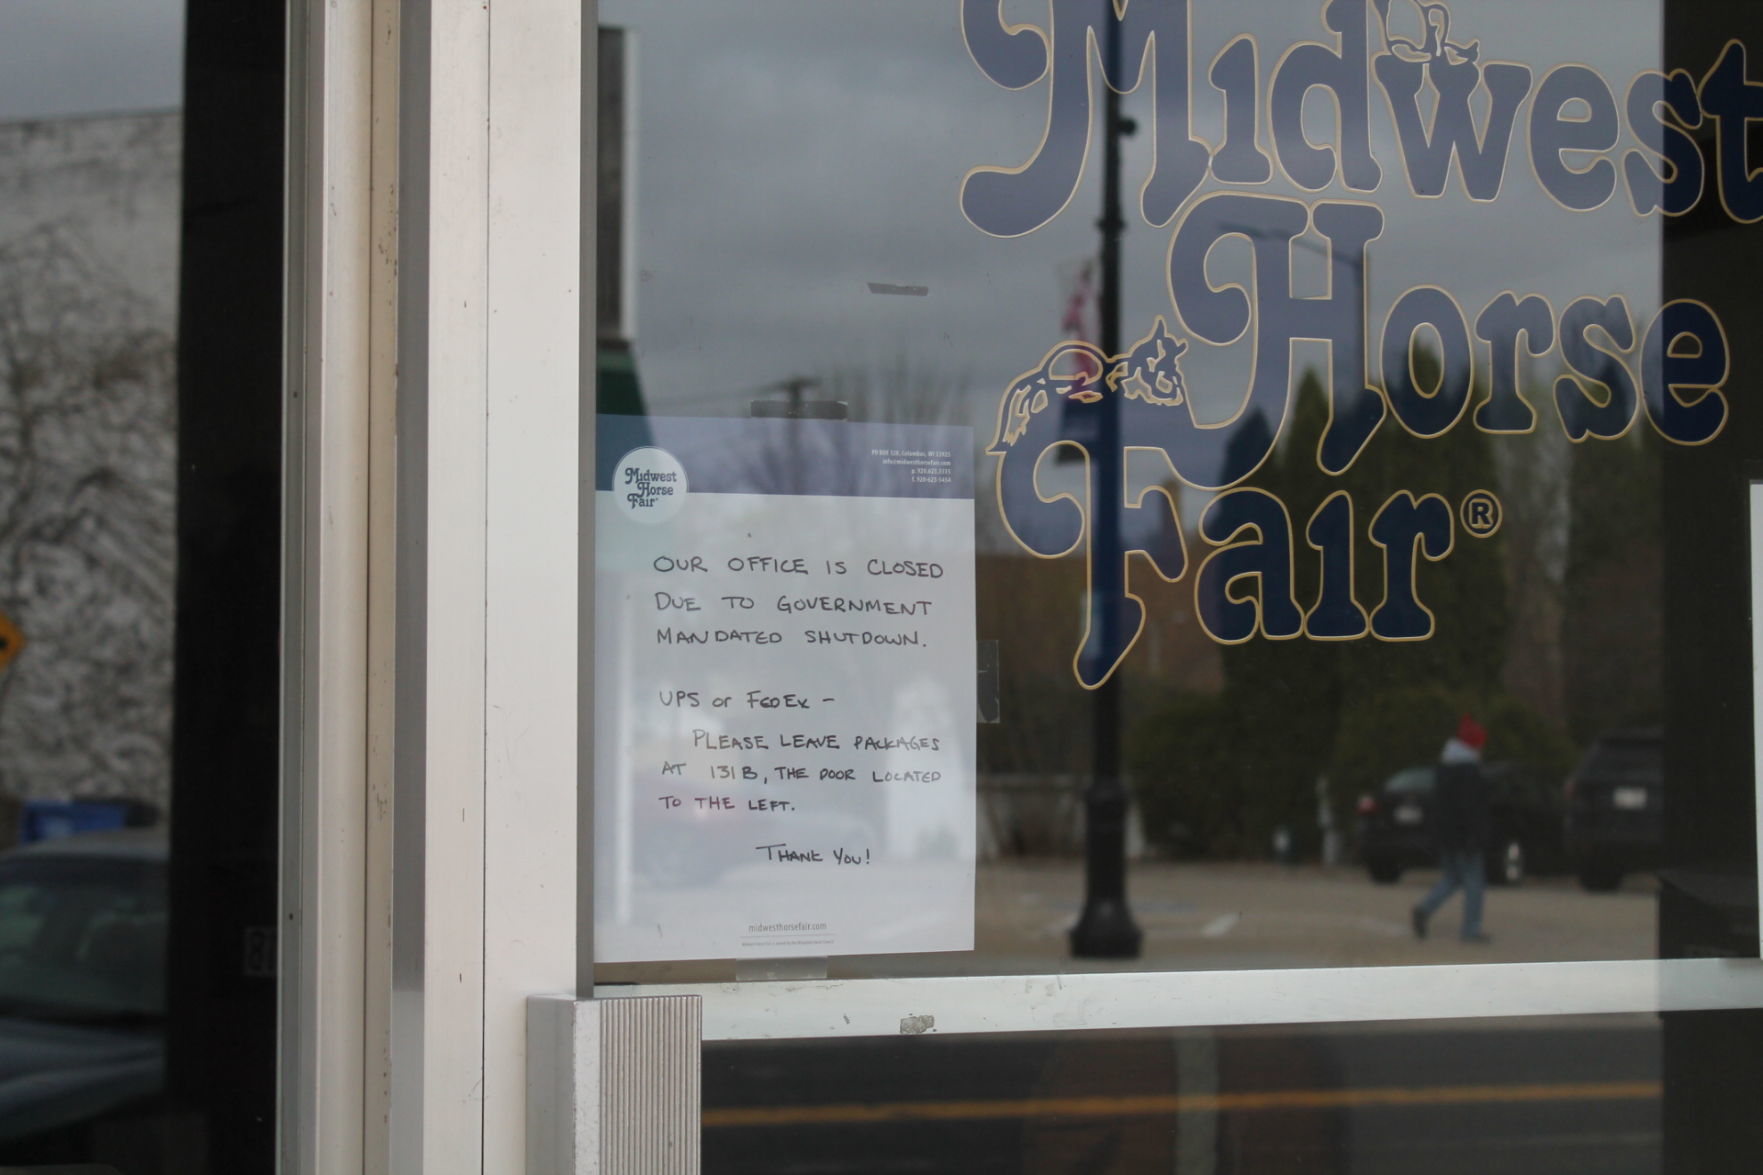 Midwest
Horse
Fair®
Midwest
Horse
Fair
PO BOX 128, Columbus, WI 53925
info@midwesthorsefair.com
OUR OFFICE IS CLOSED
DUE TO GOVERNMENT
MANDATED SHUTDOWN.
UPS or FedEx -
PLEASE LEAVE PACKAGES
AT 131B, THE DOOR LOCATED
TO THE LEFT.
THANK YOU!
midwesthorsefair.com